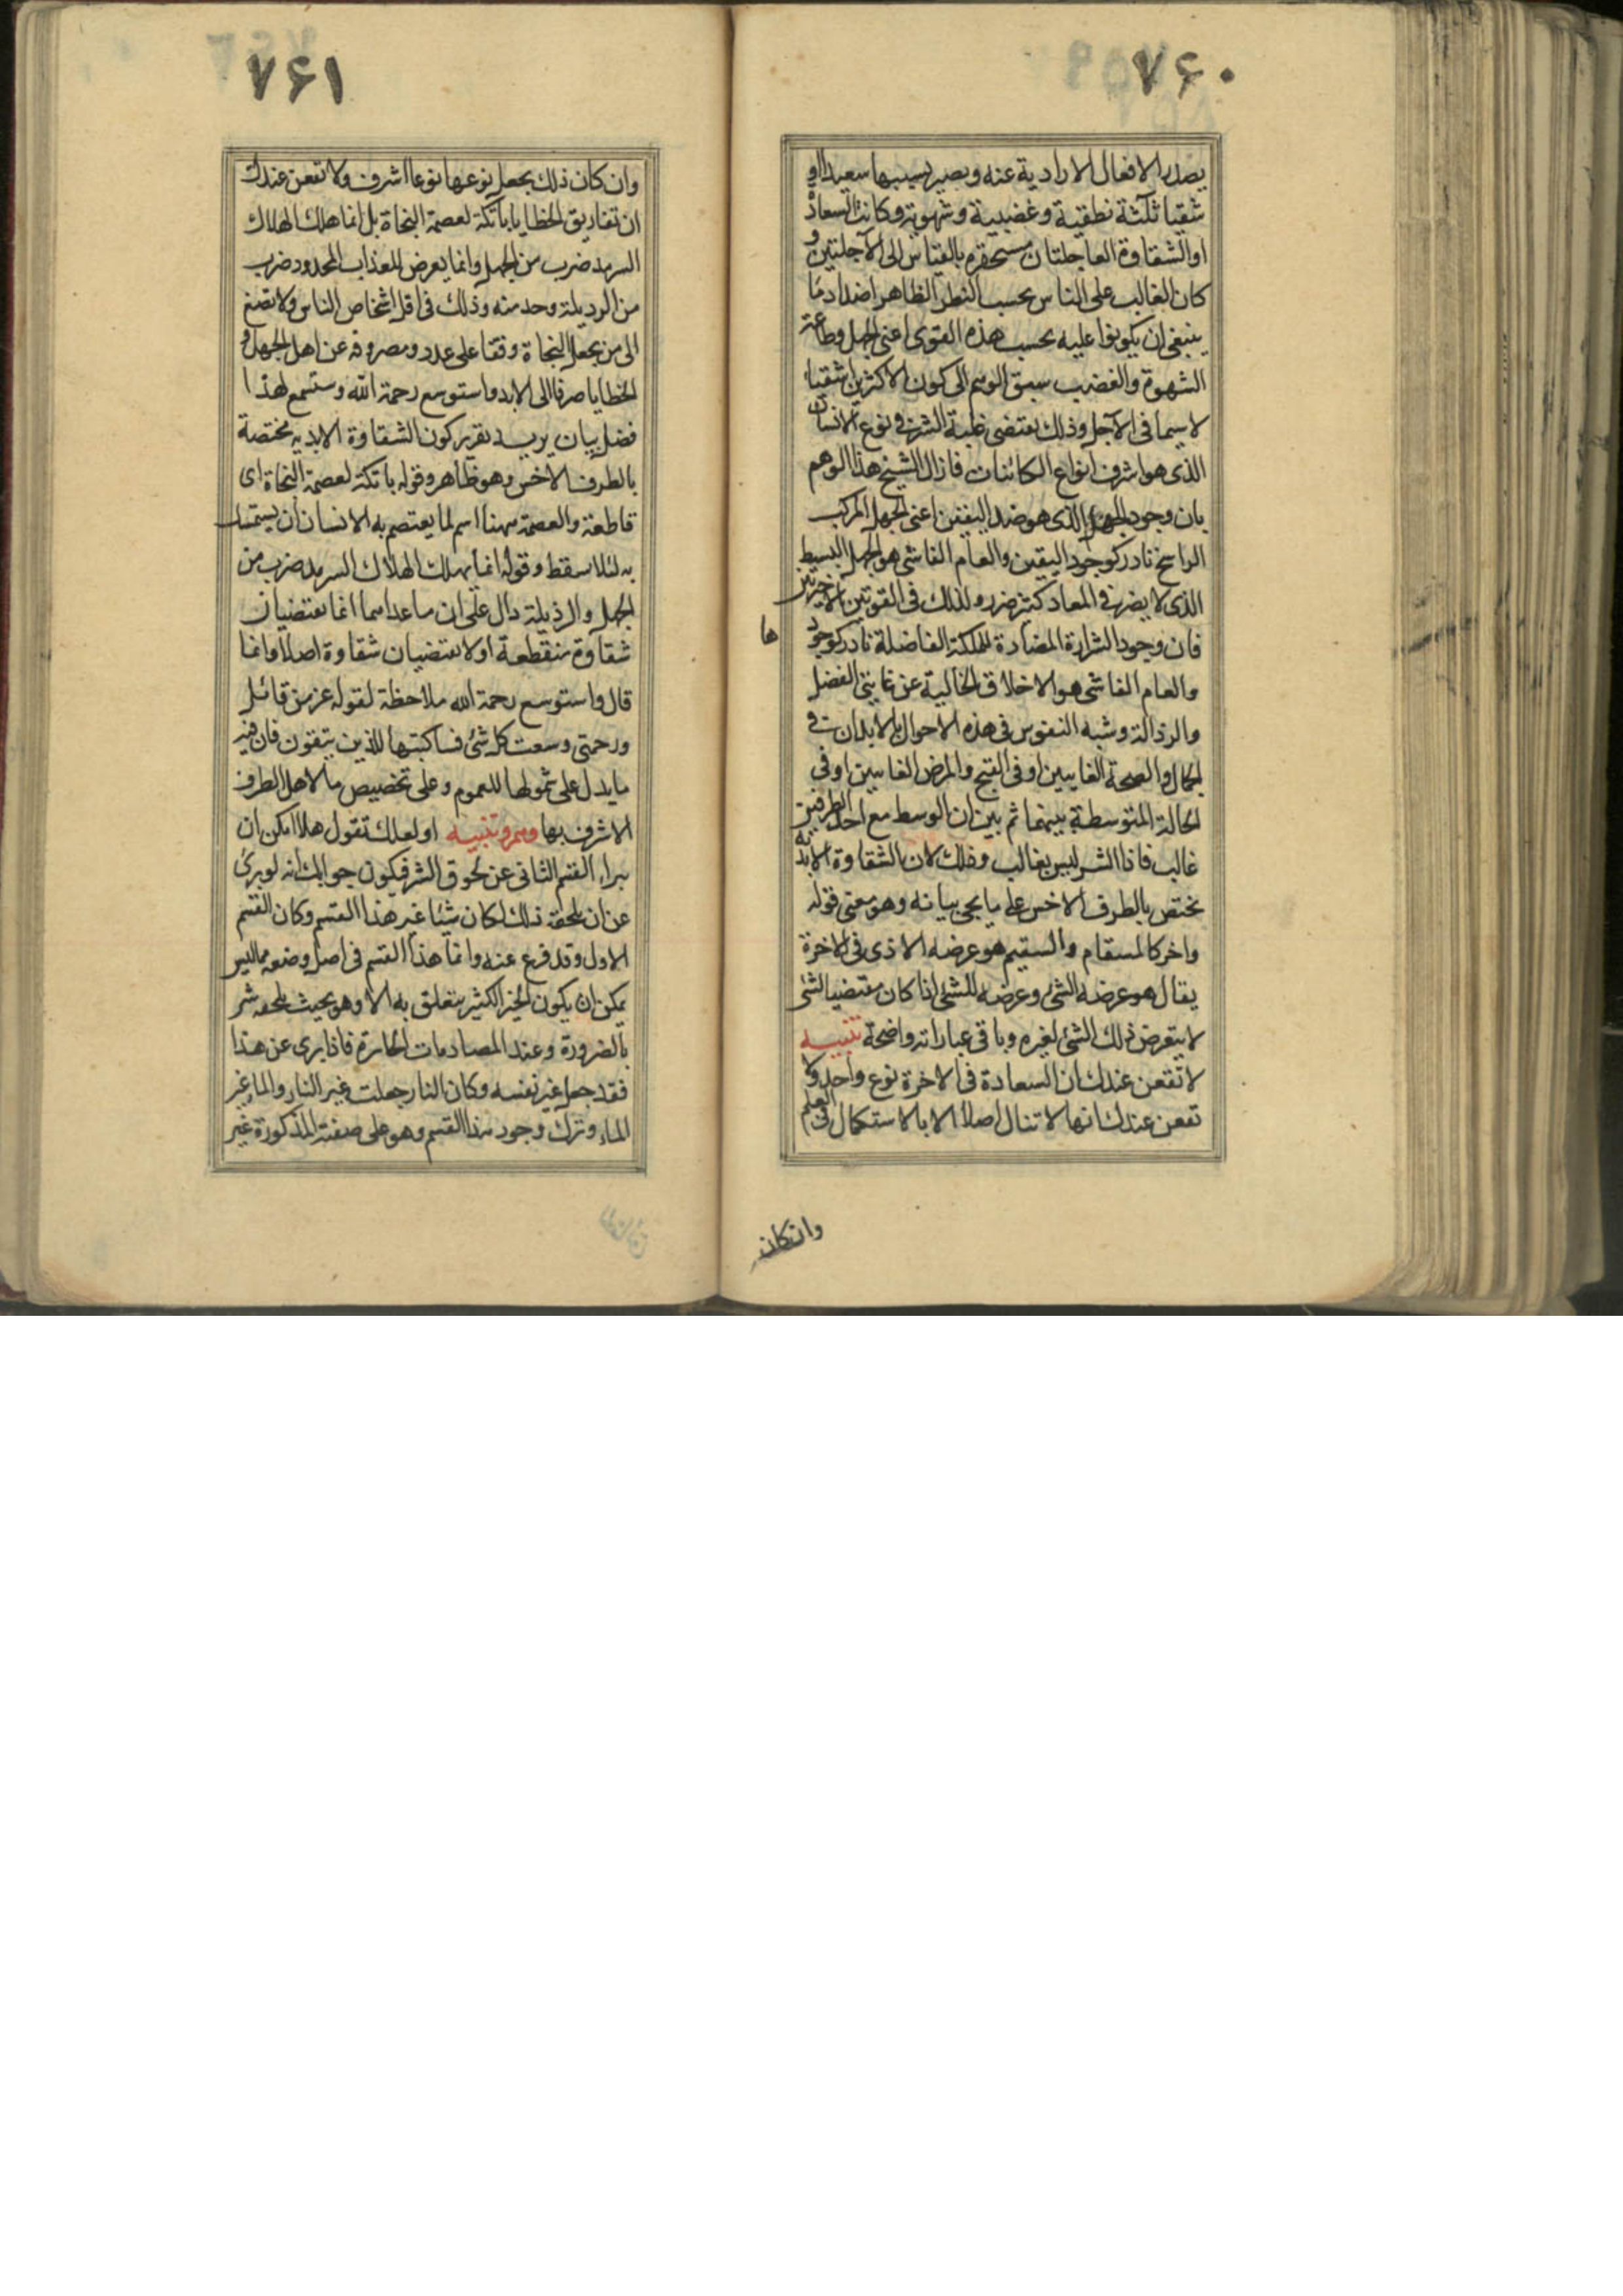 ٧۶٠
يصدر الافعال الارادية عنه ويصير بسببها سعيدا او
شقيا ثلثة نطقية وغضبية وشهوية وكانت السعادة
او الشقاوة العاجلتان مستحقرة بالقياس الى الآجلتين و
كان الغالب على الناس بحسب النظر الظاهر اضداد ما
ينبغى ان يكونوا عليه بحسب هذه القوى اعنى الجهل وطاعة
الشهوة والغضب سبق الوهم الى كون الاكثرين اشقياء
لاسيما فى الآجل وذلك يقتضى غلبة الشر فى نوع الانسان
الذى هو اشرف انواع الكائنات فازال الشيخ هذا الوهم
بان وجود الجهل الذى هو ضد اليقين اعنى الجهل المركب
الراسخ نادر كوجود اليقين والعام الفاشى هو الجهل البسيط
الذى لا يضر فى المعاد كثير ضرر وكذلك فى القوتين الاخريين
فان وجود الشرارة المضادة للملكة الفاضلة نادر كوجود
ها
والعام الفاشى هو الاخلاق الخالية عن غايتى الفضل
والرذالة وشبه النفوس فى هذه الاحوال بالابدان فى
الجمال والصحة الغايبين او فى القبح والمرض الغايبين او فى
الحالة المتوسطة بينهما ثم بين ان الوسط مع احد الطرفين
غالب فاذا الشر ليس بغالب وذلك لان الشقاوة الابدية
تختص بالطرف الاخس على ما يجئ بيانه وهو معنى قوله
واخر كالمسقام والسقيم هو عرضه الاذى فى الاخرة
يقال هو عرضه الشئ وعرضه للشئ اذا كان مقتضيا لشئ
لا يتعرض ذلك الشئ لغيره وباقى عباراته واضحة تنبيه
لا تقعن عندك ان السعادة فى الاخرة نوع واحد ولا
تقعن عندك انها لا تنال اصلا الا بالاستكمال فى العلم
وان كان
٧۶١
وان كان ذلك يجعل نوعها نوعا اشرف ولا تقعن عندك
ان تفاريق الخطايا باتكة لعصمة النجاة بل انما هلك الهلاك
السرمد ضرب من الجهل وانما يعرض للعذاب المحدود ضرب
من الرذيلة وحد منه وذلك فى اقل اشخاص الناس ولا تصغ
الى من يجعل النجاة وقفا على عدد ومصروفة عن اهل الجهل و
الخطايا صرفا الى الابد واستوسع رحمة الله وستسمع لهذا
فضل بيان يريد تقرير كون الشقاوة الابدية مختصة
بالطرف الاخس وهو ظاهر وقوله باتكة لعصمة النجاة اى
قاطعة والعصمة ههنا اسم لما يعتصم به الانسان ان يستمسك
به لئلا سقط وقوله انما يهلك الهلاك السرمد ضرب من
الجهل والرذيلة دال على ان ما عداهما انما يقتضيان
شقاوة منقطعة او لا يقتضيان شقاوة اصلا وانما
قال واستوسع رحمة الله ملاحظة لقوله عز من قائل
ورحمتى وسعت كل شئ فساكتبها للذين يتقون فان فيه
ما يدل على شمولها للعموم وعلى تخصيص ما لاهل الطرف
الاشرف بها وهم وتنبيه او لعلك تقول هلا امكن ان
يبراء القسم الثانى عن لحوق الشر فيكون جوابك انه لو برئ
عن ان يلحقه ذلك لكان شيئا غير هذا القسم وكان القسم
الاول وقد فرغ عنه وانما هذا القسم فى اصل وضعه مما ليس
يمكن ان يكون الخير الكثير يتعلق به الا وهو بحيث يلحقه شر
بالضرورة وعند المصادمات الحارة فاذا برى عن هذا
فقد جعل غير نفسه وكان النار جعلت غير النار والماء غير
الماء وترك وجود هذا القسم وهو على صفته المذكورة غير